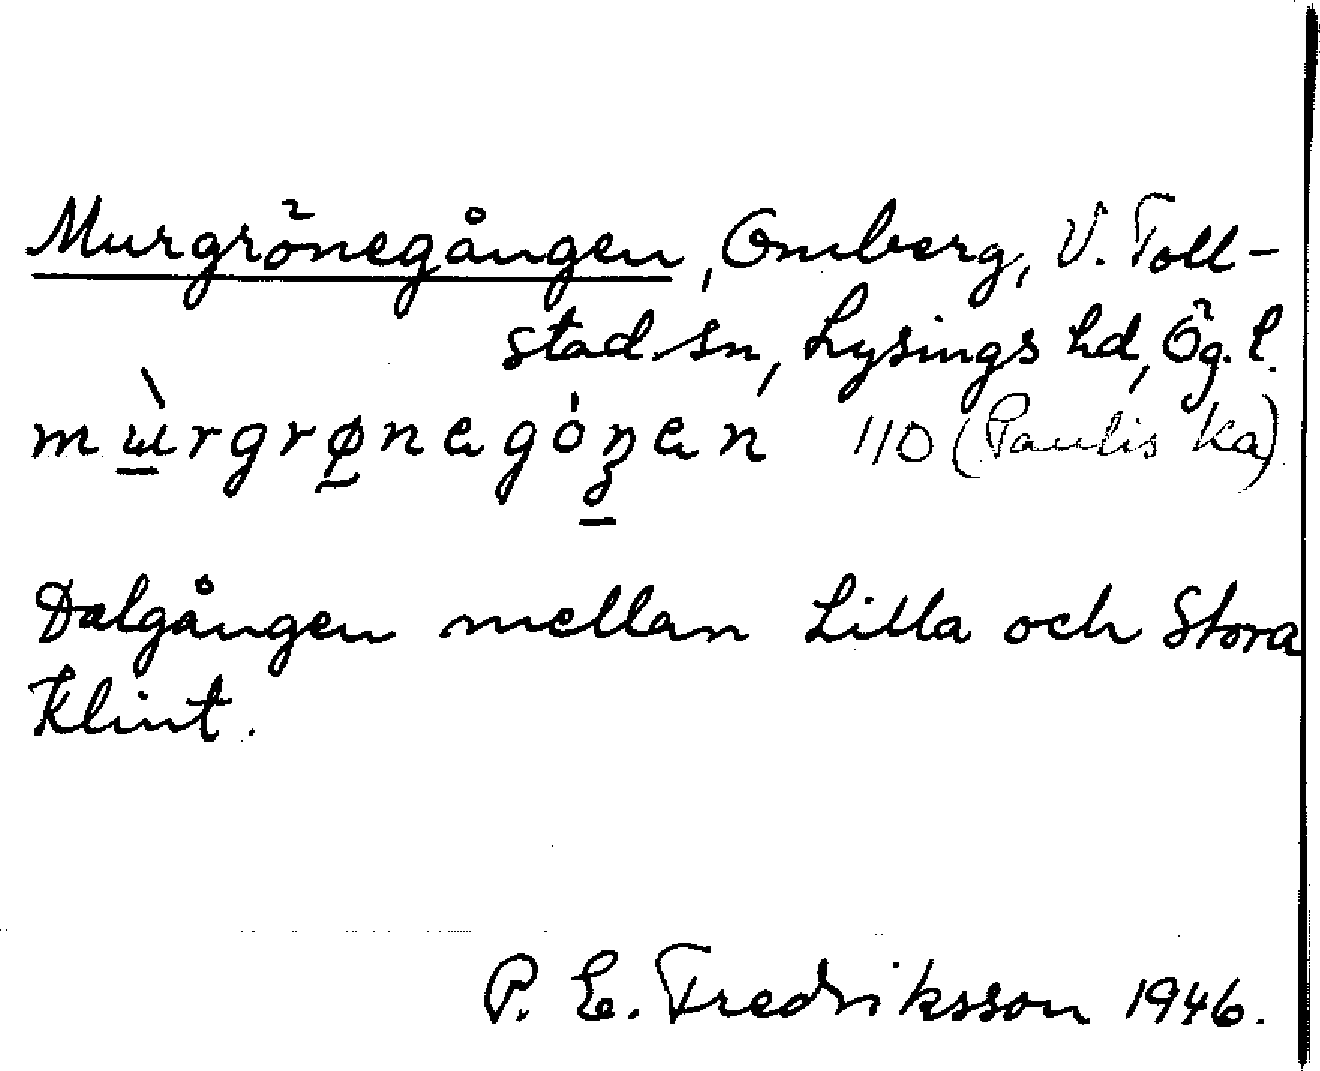 Murgrönegången, Omberg, V. Toll-
stad sn, Lysings hd, Ög. l.
mùrgrønegóŋen 110 (Paulis ka)
Dalgången mellan Lilla och Stora
Klint.
P. E. Fredriksson 1946.